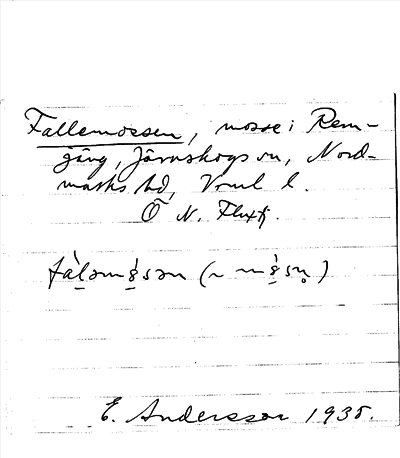 Fallemossen, mosse i Rem-
gång, Järnskogs sn, Nord-
marks hd, Vrml l.
Ö N. Fluxtj.
fàləm
E. Andersson 1935.